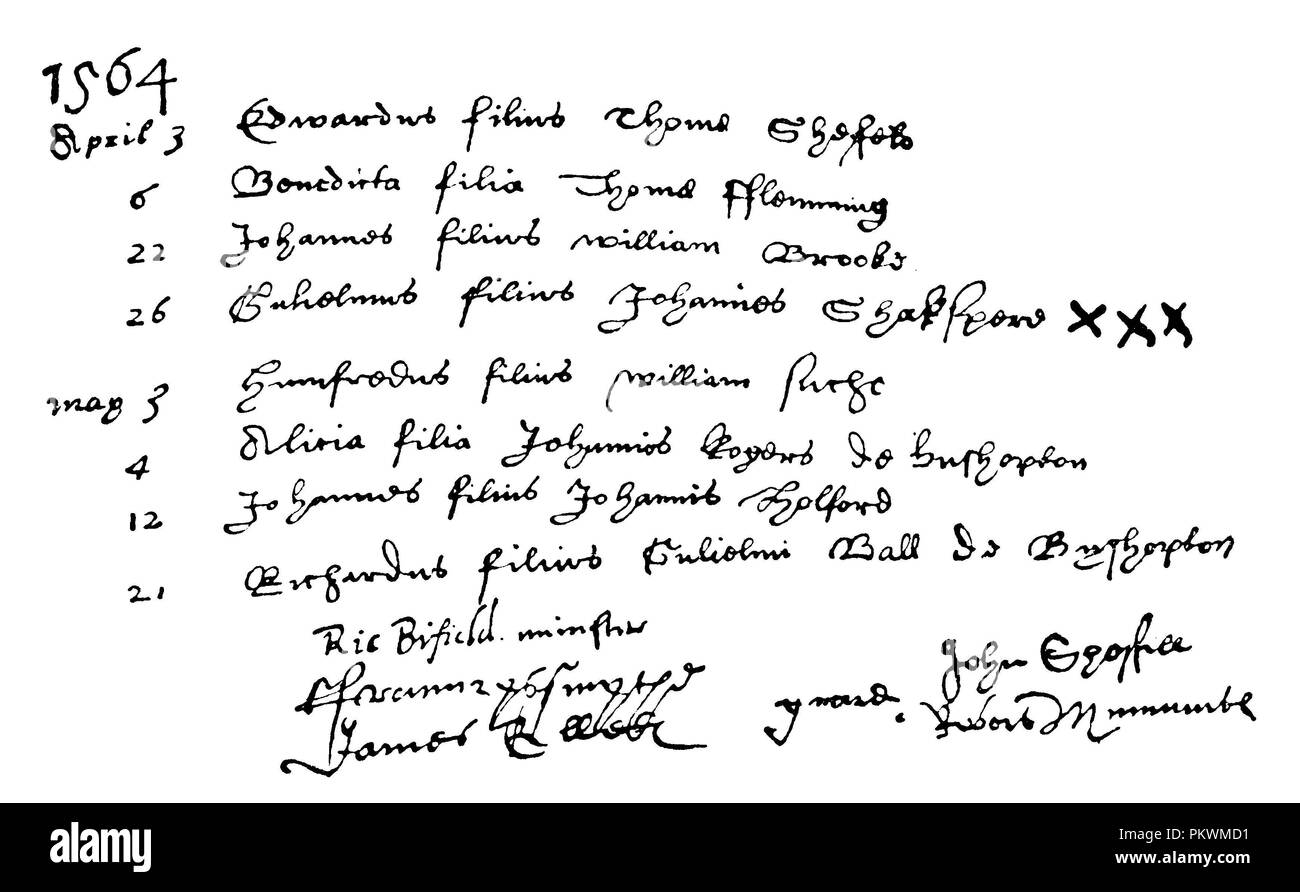 1564
April 3 Edwardus filius Thome Shefeld
6 Benedicta filia Thome Fflemming
22 Johannes filius william Brooke
26 Gulielmus filius Johannes Shakspere XXX
may 3 Humfredus filius william
4 Alicia filia Johannis Rogers de bushopton
12 Johannes filius Johannis Holford
21 Richardus filius Gulielmi Ball de Byshopton
Ric Bifield minister
John
James
alamy
Image ID: PKWMD1
www.alamy.com